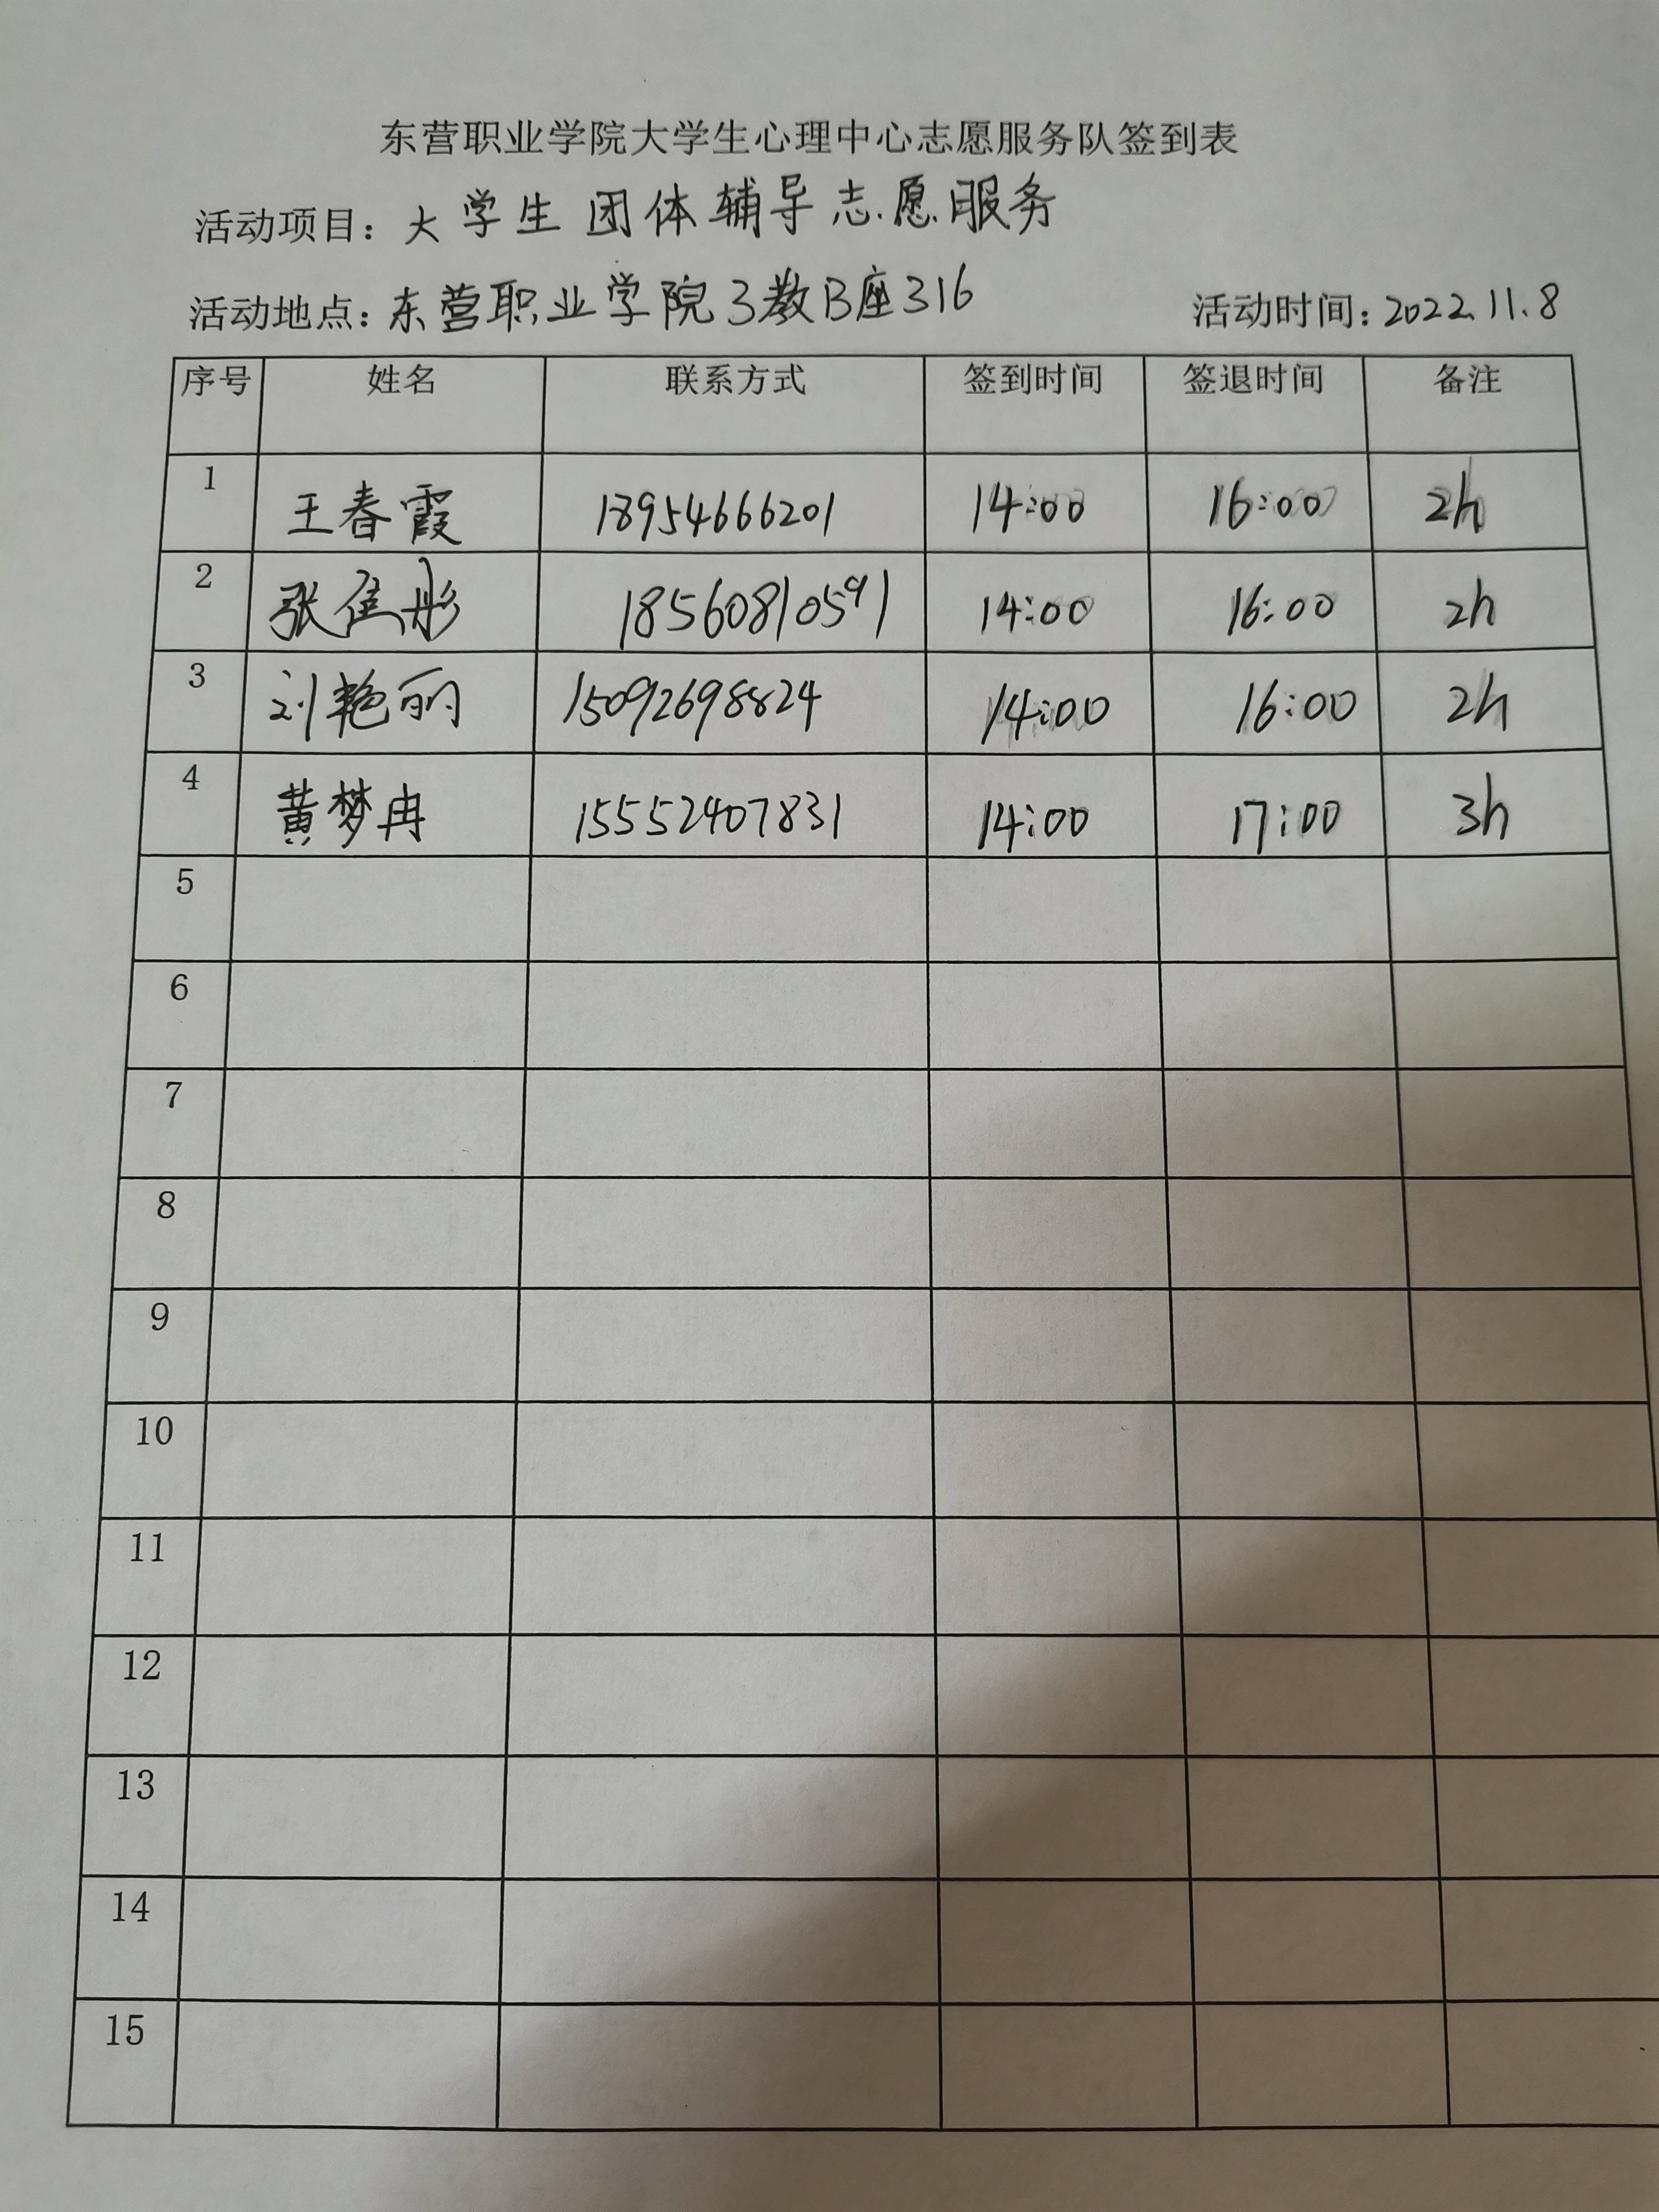 东营职业学院大学生心理中心志愿服务队签到表
活动项目：大学生团体辅导志愿服务
活动地点：东营职业学院3教B座316 活动时间：2022.11.8
序号 姓名 联系方式 签到时间 签退时间 备注
1 王春霞 18954666201 14:00 16:00 2h
2 张 彤 18560810591 14:00 16:00 2h
3 刘艳丽 15092698824 14:00 16:00 2h
4 黄梦冉 15552407831 14:00 17:00 3h
5
6
7
8
9
10
11
12
13
14
15